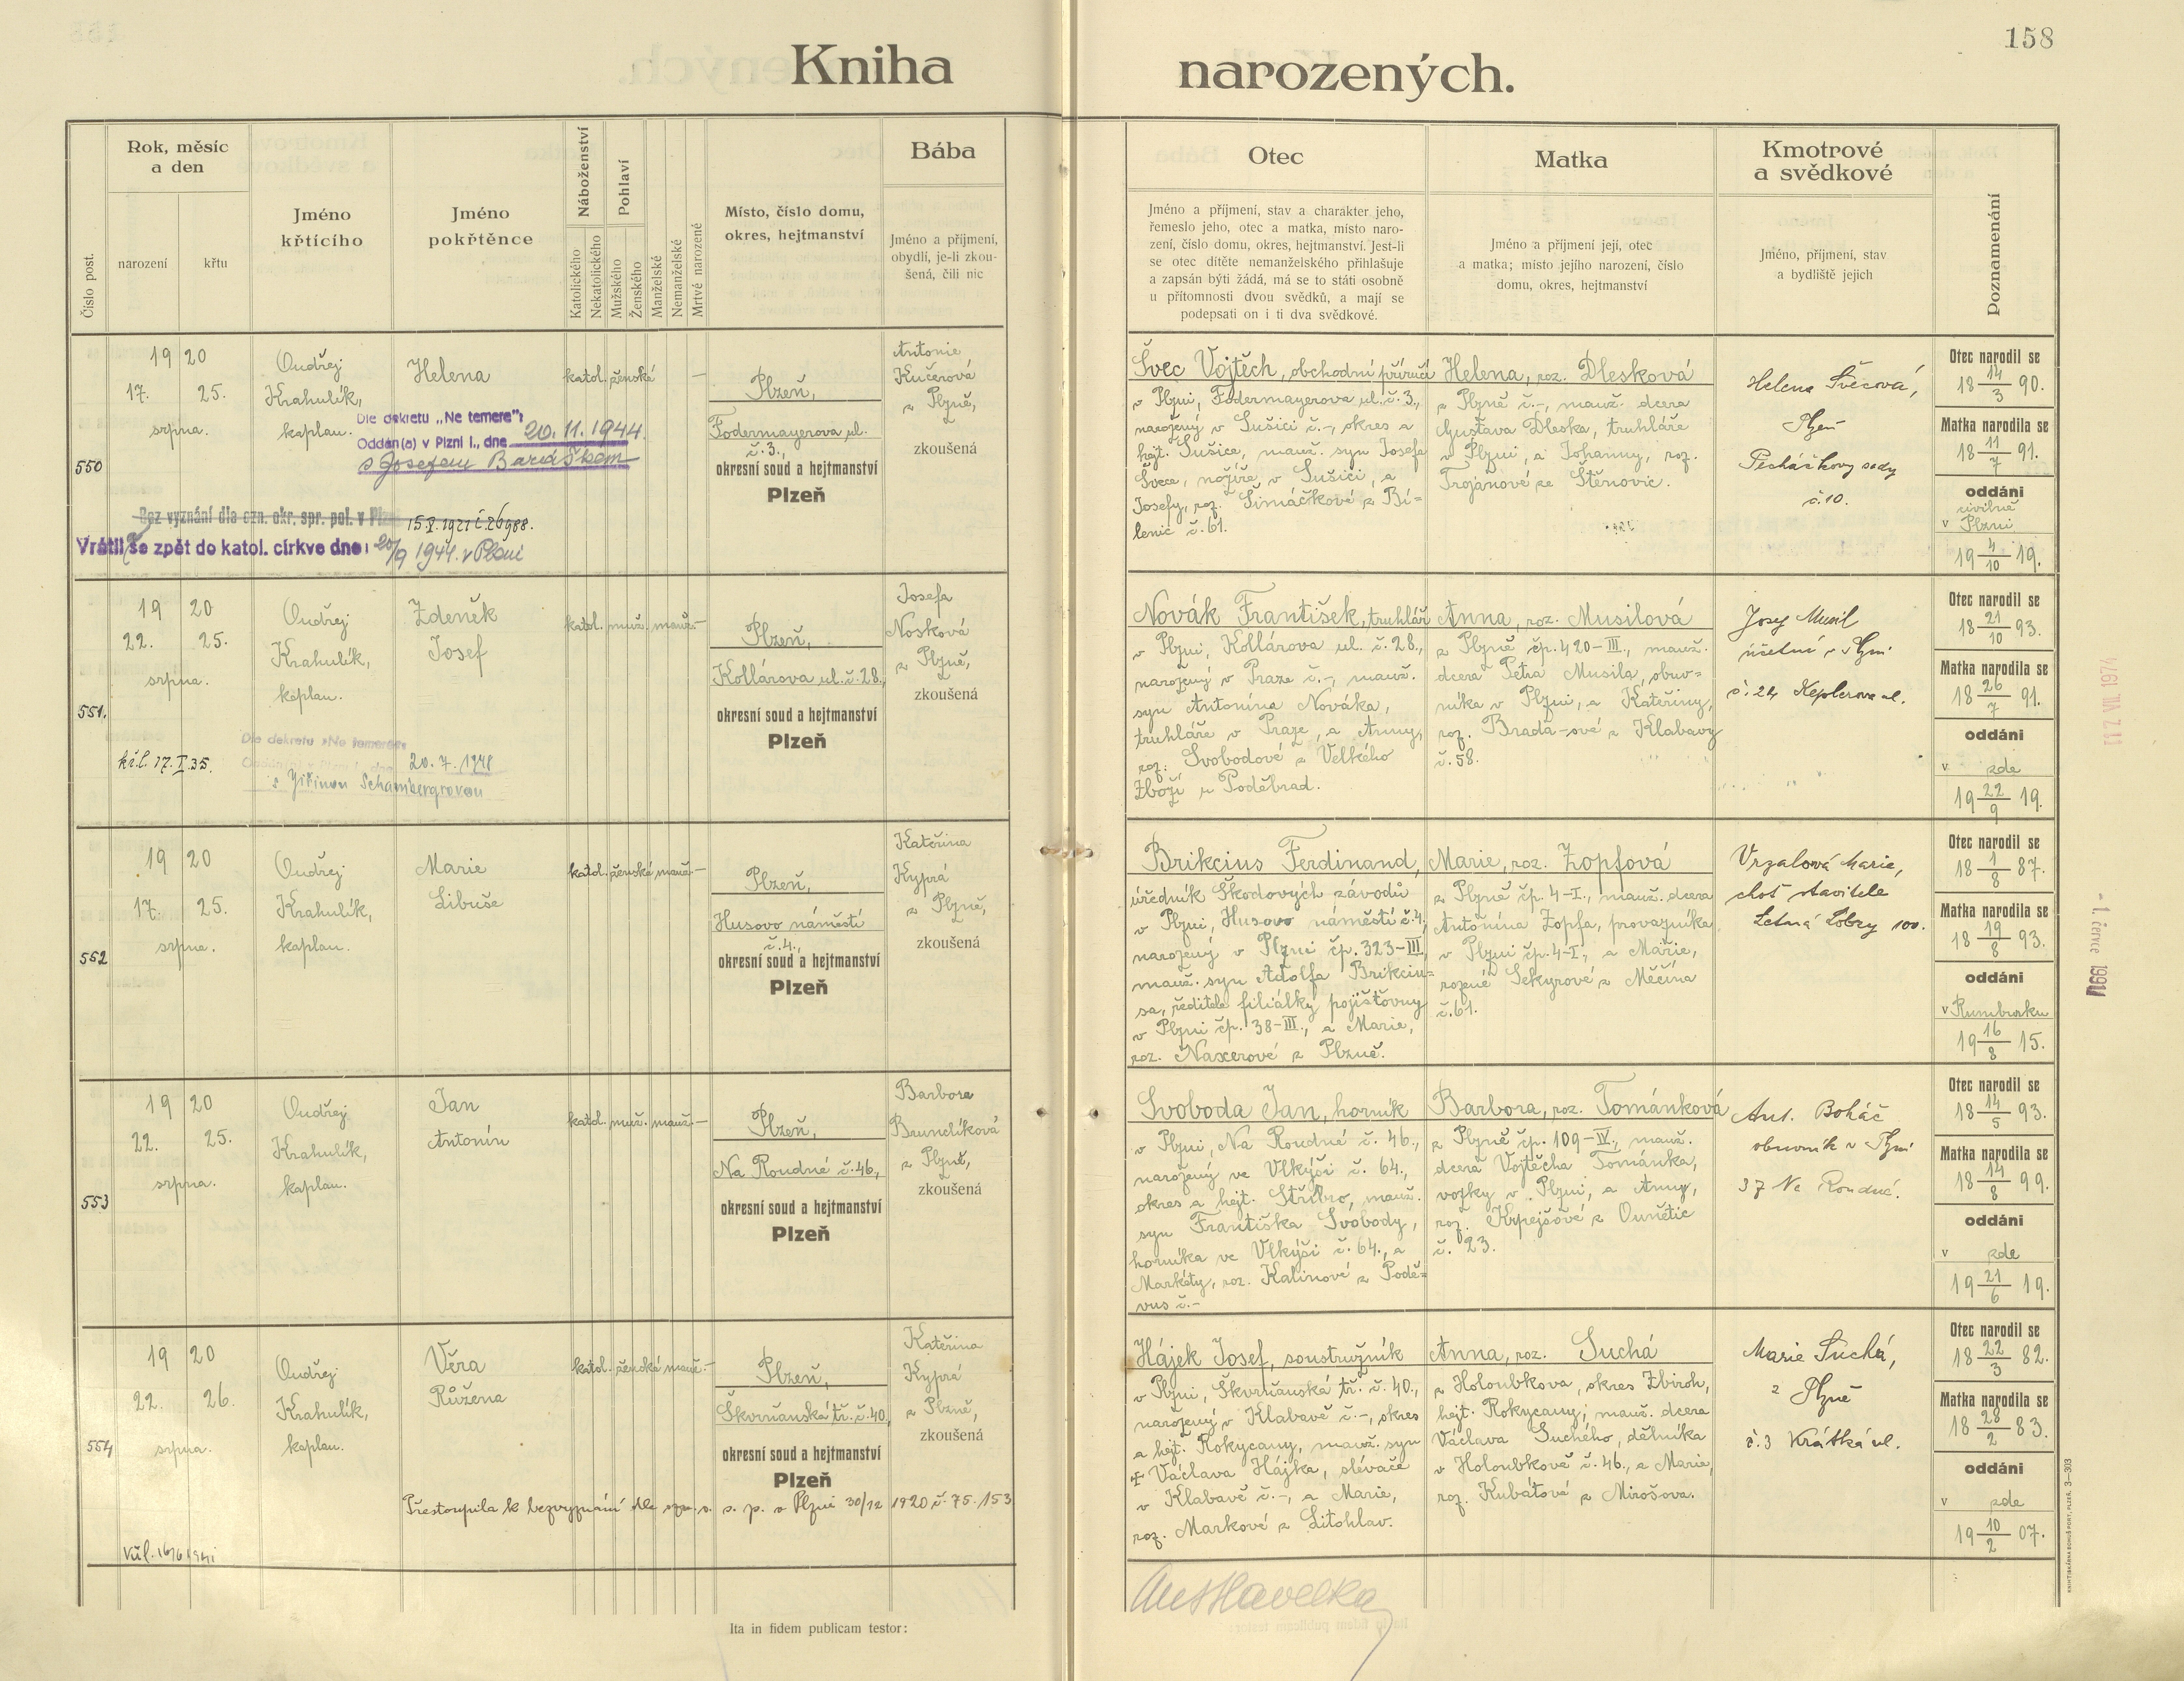 158
Kniha narozených.
Číslo post.
Rok, měsíc
a den
narození
křtu
Jméno
křtícího
Jméno
pokřtěnce
Náboženství
Katolického
Nekatolického
Pohlaví
Mužského
Ženského
Manželské
Nemanželské
Mrtvé narozené
Místo, číslo domu,
okres, hejtmanství
Bába
Jméno a příjmení,
obydlí, je-li zkou-
šená, čili nic
Otec
Jméno a příjmení, stav a charakter jeho,
řemeslo jeho, otec a matka, místo naro-
zení, číslo domu, okres, hejtmanství. Jest-li
se otec dítěte nemanželského přihlašuje
a zapsán býti žádá, má se to státi osobně
u přítomnosti dvou svědků, a mají se
podepsati on i ti dva svědkové.
Matka
Jméno a příjmení její, otec
a matka; místo jejího narození, číslo
domu, okres, hejtmanství
Kmotrové
a svědkové
Jméno, příjmení, stav
a bydliště jejich
Poznamenání
550
19 20
17. 25.
srpna.
Ondřej
Krahulík,
kaplan.
Helena
katol. ženská –
Plzeň,
Fodermayerova ul.
č. 3.,
okresní soud a hejtmanství
Plzeň
Antonie
Kučerová
z Plzně,
zkoušená
Dle dekretu „Ne temere":
Oddán(a) v Plzni I., dne 20.11.1944.
s Josefem Baráškem
Bez vyznání dle ozn. okr. spr. pol. v Plzni 15.V.1921 č.26988.
Vrátila se zpět do katol. církve dne: 20/9 1944. v Plzni
Švec Vojtěch, obchodní příručí
v Plzni, Fodermayerova ul. č. 3.,
narozený v Sušici č.–, okres a
hejt. Sušice, manž. syn Josefa
Švece, nožíře v Sušici, a
Josefy, roz. Šimáčkové z Bí-
lenic č. 61.
Helena, roz. Dlesková
z Plzně č.–, manž. dcera
Gustava Dleska, truhláře
v Plzni, a Johanny, roz.
Trojanové ze Štěnovic.
Helena Švecová,
Plzeň
Pecháčkovy sady
č. 10.
Otec narodil se
18 14/3 90.
Matka narodila se
18 11/7 91.
oddáni
civilně
v Plzni
19 4/10 19.
551.
19 20
22. 25.
srpna.
Ondřej
Krahulík,
kaplan.
Zdeněk
Josef
katol. muž. manž. –
Plzeň,
Kollárova ul. č. 28.,
okresní soud a hejtmanství
Plzeň
Josefa
Nosková
z Plzně,
zkoušená
kř.l. 17.I.35.
Dle dekretu »Ne temere«
20. 7. 1948
s Jiřinou Schambergrovou
Novák František, truhlář
v Plzni, Kollárova ul. č. 28.,
narozený v Praze č.–, manž.
syn Antonína Nováka,
truhláře v Praze, a Anny,
roz. Svobodové z Velkého
Zboží u Poděbrad.
Anna, roz. Musilová
z Plzně čp. 420-III., manž.
dcera Petra Musila, obuv-
níka v Plzni, a Kateřiny,
roz. Brada-ové z Klabavy
č. 58.
Josef Musil
účetní v Plzni
č. 24 Keplerova ul.
Otec narodil se
18 21/10 93.
Matka narodila se
18 26/7 91.
oddáni
v zde
19 22/9 19.
552
19 20
17. 25.
srpna.
Ondřej
Krahulík,
kaplan.
Marie
Libuše
katol. ženská manž. –
Plzeň,
Husovo náměstí
č. 4.,
okresní soud a hejtmanství
Plzeň
Kateřina
Kyprá
z Plzně,
zkoušená
Brikcius Ferdinand,
úředník Škodových závodů
v Plzni, Husovo náměstí č. 4,
narozený v Plzni čp. 323-III,
manž. syn Adolfa Brikciu-
sa, ředitele filiálky pojišťovny
v Plzni čp. 38-III., a Marie,
roz. Naxerové z Plzně.
Marie, roz. Zopfová
z Plzně čp. 4-I., manž. dcera
Antonína Zopfa, provazníka
v Plzni čp. 4-I., a Marie,
rozené Sekyrové z Měčína
č. 61.
Vrzalová Marie,
choť stavitele
Letná Lobzy 100.
Otec narodil se
18 1/8 87.
Matka narodila se
18 19/8 93.
oddáni
v Rumburku
19 16/8 15.
553
19 20
22. 25.
srpna.
Ondřej
Krahulík,
kaplan.
Jan
Antonín
katol. muž. manž. –
Plzeň,
Na Roudné č. 46.,
okresní soud a hejtmanství
Plzeň
Barbora
Brunclíková
z Plzně,
zkoušená
Svoboda Jan, horník
v Plzni, Na Roudné č. 46.,
narozený ve Vlkýši č. 64.,
okres a hejt. Stříbro, manž.
syn Františka Svobody,
horníka ve Vlkýši č. 64., a
Markéty, roz. Kalinové z Podě-
vus č.–
Barbora, roz. Tománková
z Plzně čp. 109-IV., manž.
dcera Vojtěcha Tománka,
vozky v Plzni, a Anny,
roz. Krpejšové z Ounětic
č. 23.
Ant. Boháč
obuvník v Plzni
37 Na Roudné.
Otec narodil se
18 14/5 93.
Matka narodila se
18 14/8 99.
oddáni
v zde
19 21/6 19.
554
19 20
22. 26.
srpna.
Ondřej
Krahulík,
kaplan.
Věra
Růžena
katol. ženská manž. –
Plzeň,
Škvrňanská tř. č. 40,
okresní soud a hejtmanství
Plzeň
Kateřina
Kyprá
z Plzně,
zkoušená
Přestoupila k bezvyznání dle ozn. o. s. p. v Plzni 30/12 1920 č. 75.153
Hájek Josef, soustružník
v Plzni, Škvrňanská tř. č. 40.,
narozený v Klabavě č.–, okres
a hejt. Rokycany, manž. syn
† Václava Hájka, slévače
v Klabavě č.–, a Marie,
roz. Markové z Litohlav.
Anna, roz. Suchá
z Holoubkova, okres Zbiroh,
hejt. Rokycany, manž. dcera
Václava Suchého, dělníka
v Holoubkově č. 46., a Marie,
roz. Kubátové z Mirošova.
Marie Suchá,
z Plzně
č. 3 Krátká ul.
Otec narodil se
18 22/3 82.
Matka narodila se
18 28/2 83.
oddáni
v zde
19 10/2 07.
Ita in fidem publicam testor:
Ant Havelka